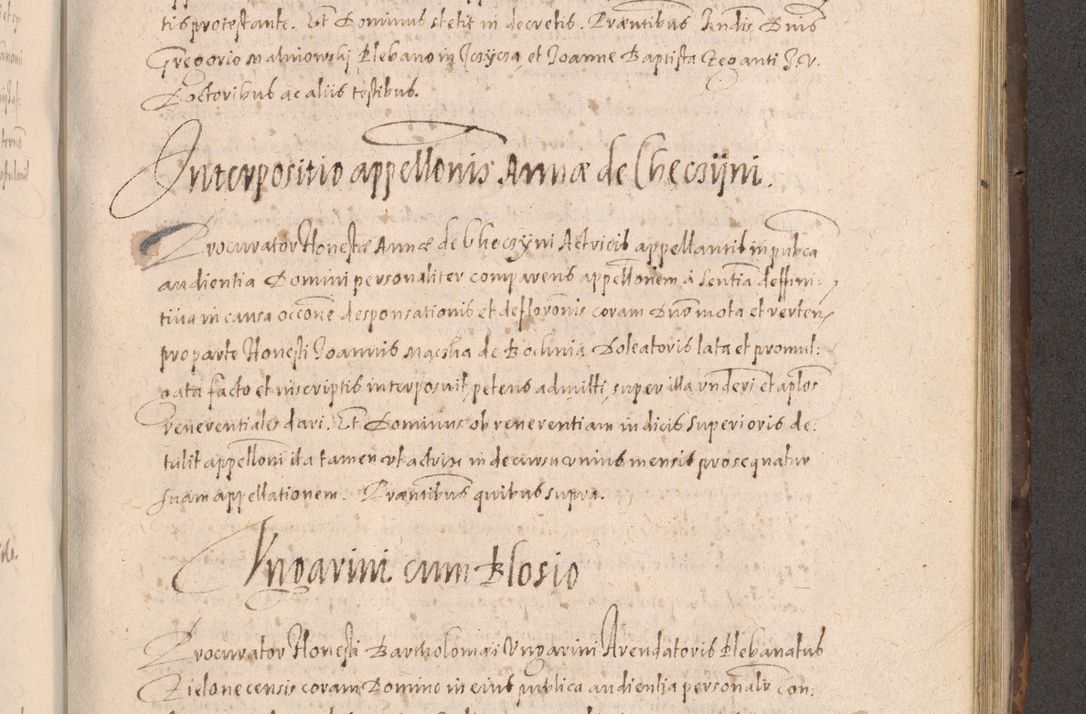 tis protestante. Et Dominus stetit in decretis. Præntibus Ibndis Dnis
Gregorio Malniowskj Plebano in et Joanne Baptista Zeganti I.V.
Doctoribus ac aliis testibus.
Interpositio appellonis Annæ de Checzÿni.
Procurator Honestæ Annæ de Checzÿni Actricis appellantis in pubca
audientia Domini personaliter comparens appellonem à sentia deffini:
tiua in causa occone desponsationis et defloronis coram Dno mota et verten
pro parte Honesti Joannis de Bochnia Doleatoris lata et promul:
gata facto et in scriptis interposuit, petens admitti, super illa vnderi et aplos
reuerentiales dari. Et Dominus ob reuerentiam iudicis superioris de:
tulit appelloni ita tamen vt actrix in decursu vnius mensis prosequatur
suam appellationem. Præntibus quibus supra.
Vngarini cum Blosio
Procurator Honesti Bartholomæi Vngarini Arendatoris Plebanatus
Zielonecensis coram Domino in eius publica audientia personalir con: